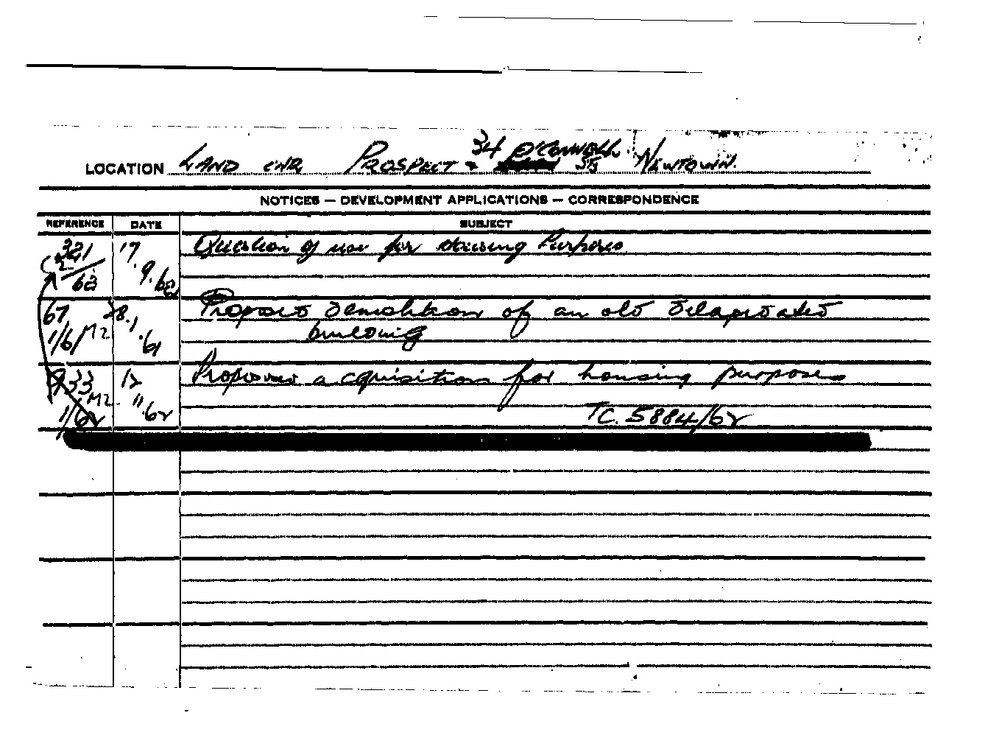 LOCATION LAND CNR PROSPECT & 34 O'CONNELL STS NEWTOWN.
NOTICES — DEVELOPMENT APPLICATIONS — CORRESPONDENCE
REFERENCE DATE SUBJECT
321 17. Question of use for Housing Purposes
62 9.62
67 28.1 Proposed Demolition of an old dilapidated
1/61 M2 .61 building
933 12 Proposed acquisition for housing purposes
M2. 11
1/62 62 TC. 5884/62